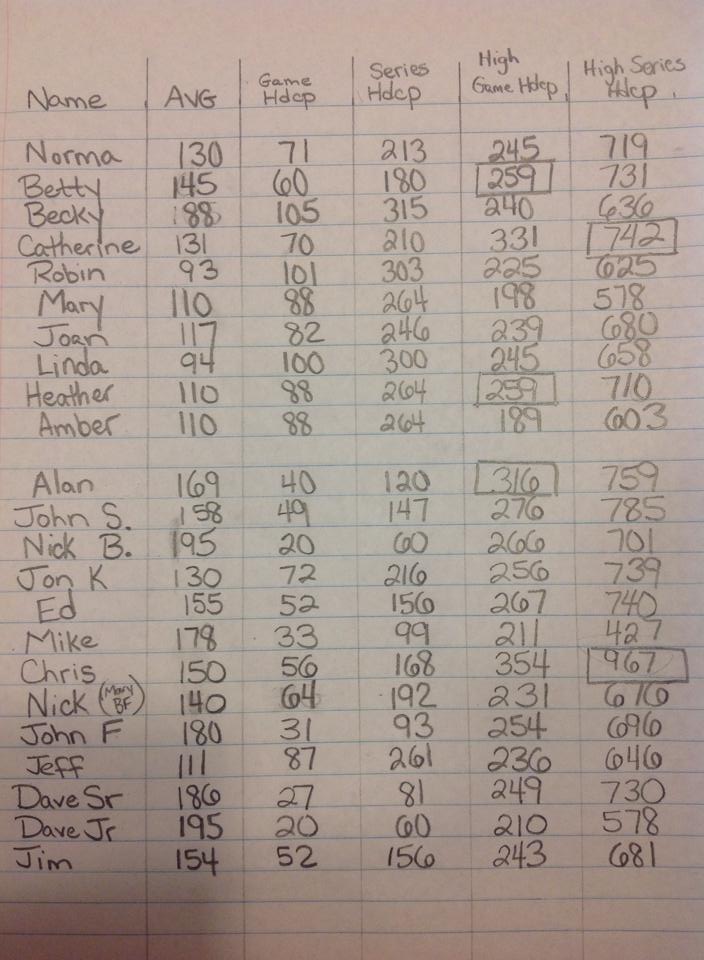 Name AVG Game Hdcp Series Hdcp High Game Hdcp. High Series Hdcp.
Norma 130 71 213 245 719
Betty 145 60 180 259 731
Becky 88 105 315 240 636
Catherine 131 70 210 331 742
Robin 93 101 303 225 625
Mary 110 88 264 198 578
Joan 117 82 246 239 680
Linda 94 100 300 245 658
Heather 110 88 264 259 710
Amber 110 88 264 189 603
Alan 169 40 120 316 759
John S. 158 49 147 276 785
Nick B. 195 20 60 266 701
Jon K 130 72 216 256 739
Ed 155 52 156 267 740
Mike 178 33 99 211 427
Chris 150 56 168 354 967
Nick (Mary BF) 140 64 192 231 676
John F 180 31 93 254 696
Jeff 111 87 261 236 646
Dave Sr 186 27 81 249 730
Dave Jr 195 20 60 210 578
Jim 154 52 156 243 681